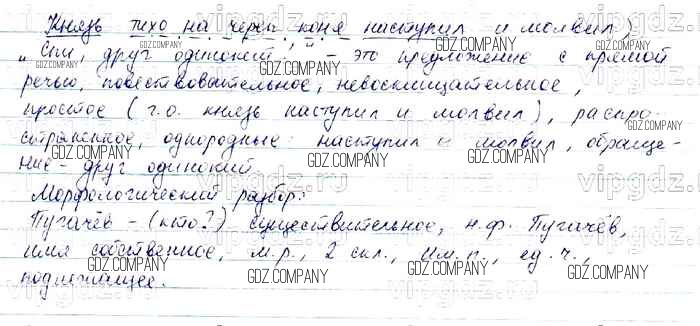 Князь тихо на череп коня наступил и молвил:
„Спи, друг одинокий!" - это предложение с прямой
речью, повествовательное, невосклицательное,
простое (г.о. князь наступил и молвил), распро-
страненное, однородные: наступил и молвил, обраще-
ние - друг одинокий.
Морфологический разбор:
Пугачёв - (кто?) существительное, н.ф. Пугачёв,
имя собственное, м.р., 2 скл., Им.п., ед.ч.,
подлежащее.